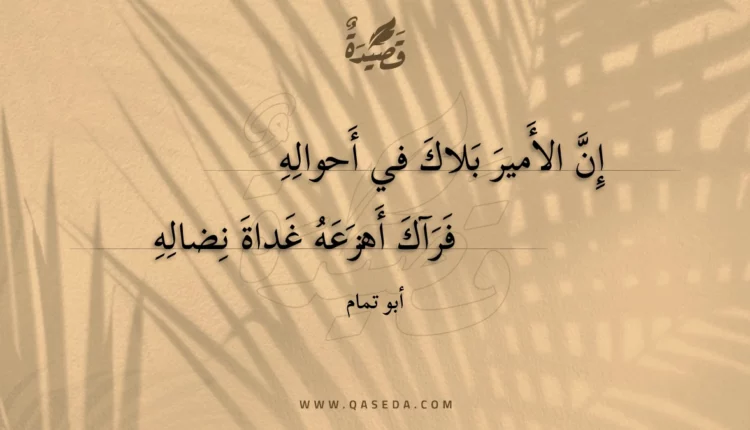 قَصِيْدَةٌ
إِنَّ الأَميرَ بَلاكَ في أَحوالِهِ
فَرَآكَ أَهزَعَهُ غَداةَ نِضالِهِ
أبو تمام
WWW.QASEDA.COM